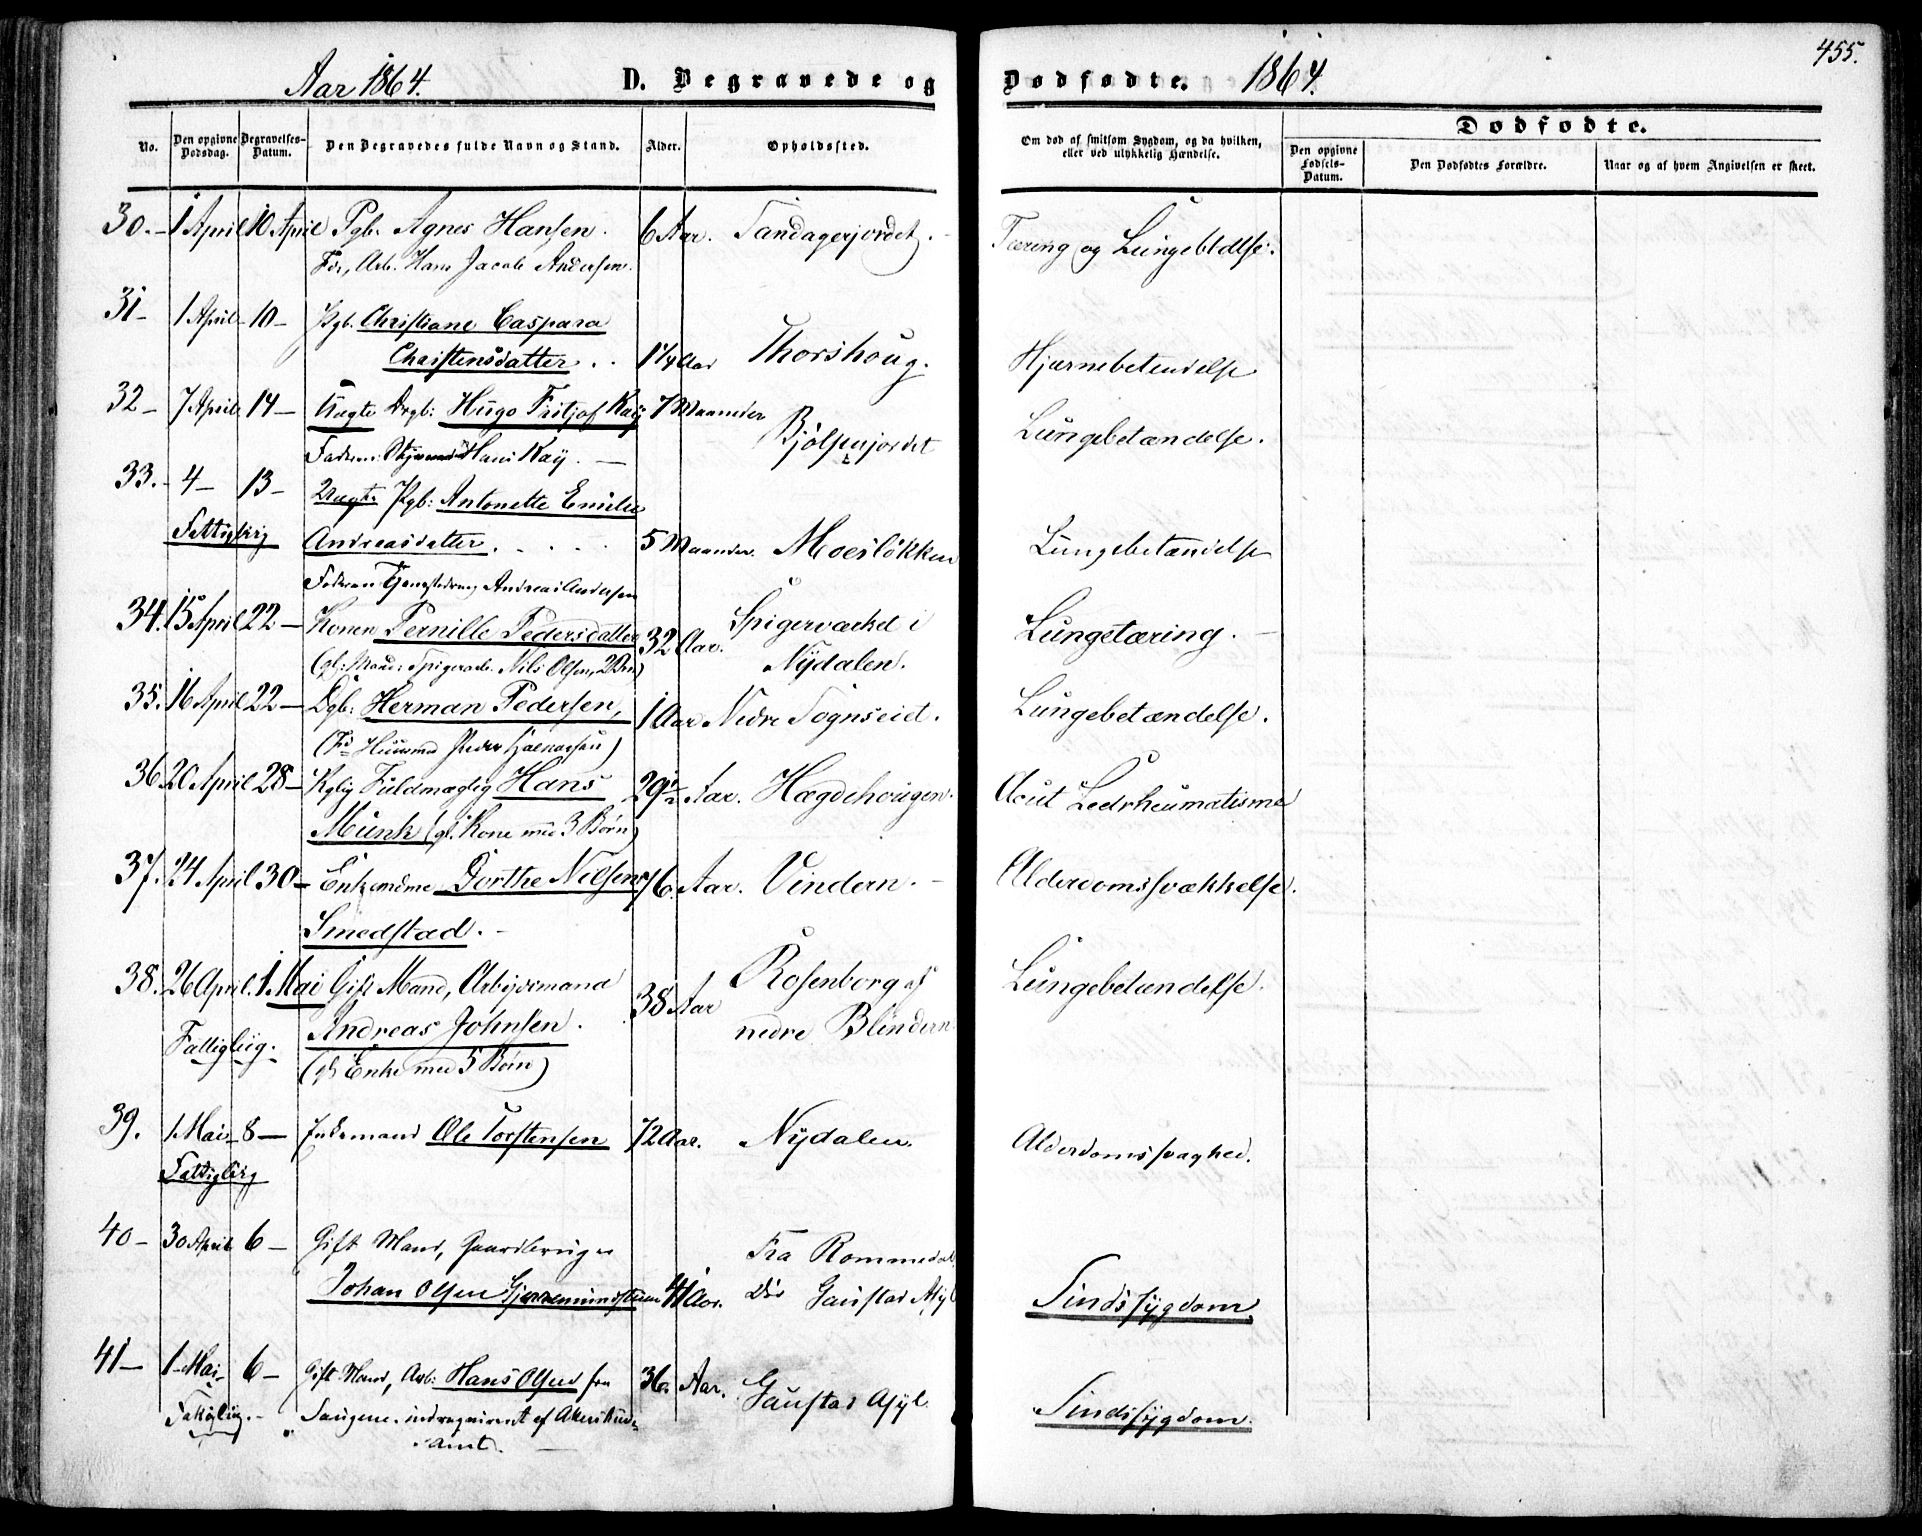 455.
Aar 1864. D. Begravede og Dødfødte. 1864.
No. Den opgivne Dødsdag. Begravelses-Datum. Den Begravedes fulde Navn og Stand. Alder. Opholdssted. Om død af smitsom Sygdom, og da hvilken, eller ved ulykkelig Hændelse. Dødfødte.
Den opgivne Fødsels-Datum. Den Dødfødtes Forældre. Naar og af hvem Angivelsen er skeet.
30. 1 April 10 April Pgb. Agnes Hansen. 6 Aar. Tandagerjordet. Tæring og Lungeblødelse.
Fdr, Arb. Hans Jacob Andersen.
31 1 April 10 Pgb. Christiane Caspara
Christensdatter 1 1/4 Aar Thorshoug. Hjærnebetendelse
32 7 April 14 Uægte Drgb: Hugo Fritjof Kay 7 Maaneder Bjölsenjordet Lungebetændelse.
Faderen: Hans Kay.
33. 4 13 Uægte Pgb: Antonette Emilie
Fattiglig Andreasdatter 5 Maaneder. Moesløkken Lungebetændelse
Faderen Andreas Andersen
34. 15 April 22 Konen Pernille Pedersdatter 32 Aar. Spigerværket i Nydalen. Lungetæring.
(gl: Mand: Spigerarb. Nils Olsen, 2 Brn)
35. 16 April 22 Dgb: Herman Pedersen, 1 Aar Nedre Sognseid. Lungebetændelse.
(Fdr Huusmd Peder )
36 20 April 28 Kglig Fuldmægtig Hans 29 1/2 Aar. Hægdehougen. Acut Ledrheumatisme
Munk (gl. Kone med 3 Børn)
37. 24 April 30 Enkemdme Dorthe Nilsen 76. Aar. Vindern. Alderdomssvækkelse.
Smedstad.
38. 26 April. 1. Mai Gift Mand, Arbejdsmand 38 Aar Rosenborg af nedre Blindern Lungebetændelse.
Fattiglig. Andreas Johnsen.
(gl Enke med 5 Børn)
39. 1. Mai 8 Enkemand Ole Torstensen 72 Aar. Nydalen. Alderdomssvaghed.
Fattiglig
40 30 April 6 Gift Mand, Gaardbruger Fra Rommedal,
Johan Olsen Gjermundstuen 41 Aar. Død Gaustad Asyl Sindssygdom,
41 1 Mai 6 Gift Mand, Arb: Hans Olsen fra 36. Aar. Gaustad Asyl. Sindssygdom.
Fattiglig. Saugene. indrequireret af Akershus-
amt.